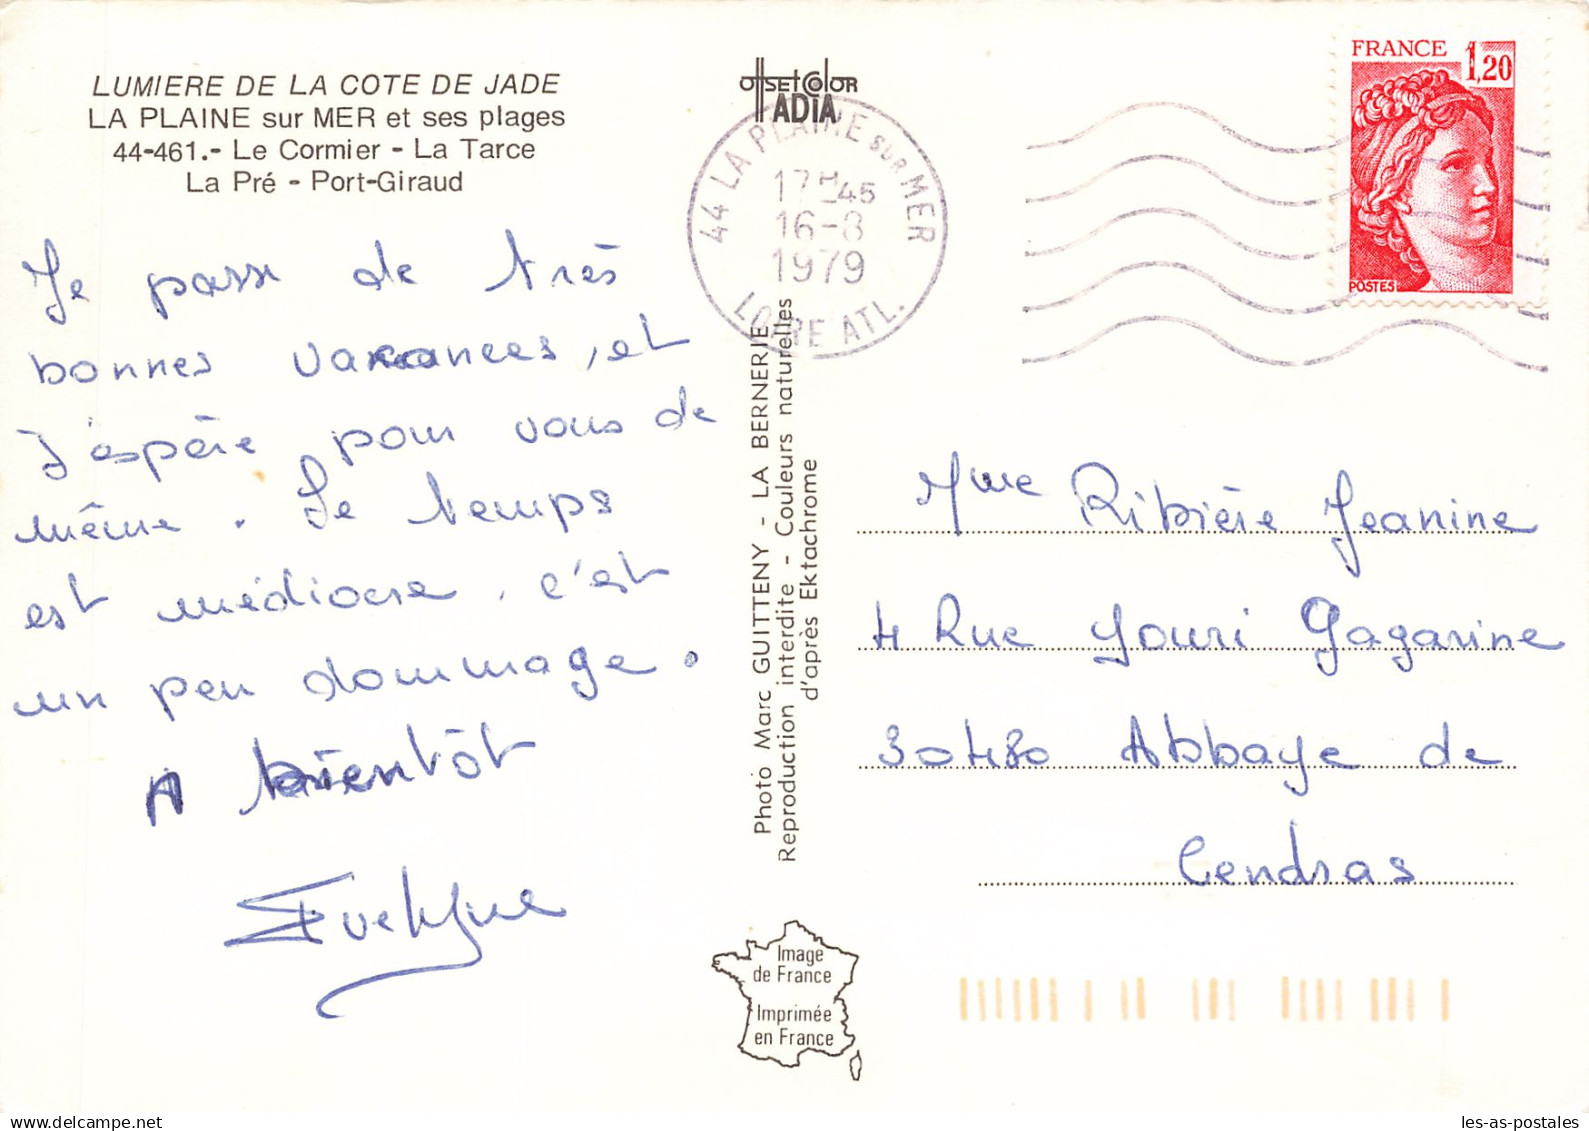 LUMIERE DE LA COTE DE JADE
LA PLAINE sur MER et ses plages
44-461.- Le Cormier - La Tarce
La Pré - Port-Giraud
Je passe de très
bonnes vacances, et
J'espère pour vous de
même. Le temps
est médiocre, c'est
un peu dommage.
A bientôt
Evelyne
OffsetColor
ADIA
44 LA PLAINE sur MER
17H45
16-8
1979
LOIRE ATL.
FRANCE 1,20
POSTES
Photo Marc GUITTENY - LA BERNERIE
Reproduction interdite - Couleurs naturelles
d'après Ektachrome
Mme Ribière Jeanine
4 Rue Youri Gagarine
30480 Abbaye de
Cendras
Image
de France
Imprimée
en France
les-as-postales